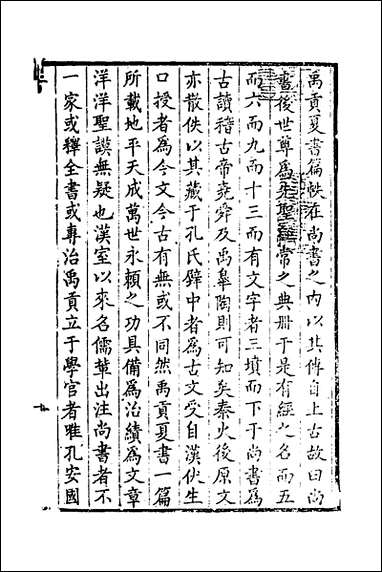 禹貢夏書篇帙在尚書之內以其傳自上古故曰尚
書後世尊為先聖經常之典册于是有經之名而五
而六而九而十三而有文字者三墳而下于尚書為
古讀稽古帝堯舜及禹臯陶則可知矣秦火後原文
亦散佚以其藏于孔氏壁中者為古文受自漢伏生
口授者為今文今古有無或不同然禹貢夏書一篇
所載地平天成萬世永賴之功具備為治績為文章
洋洋聖謨無疑也漢室以來名儒輩出注尚書者不
一家或釋全書或專治禹貢立于學官者唯孔安國